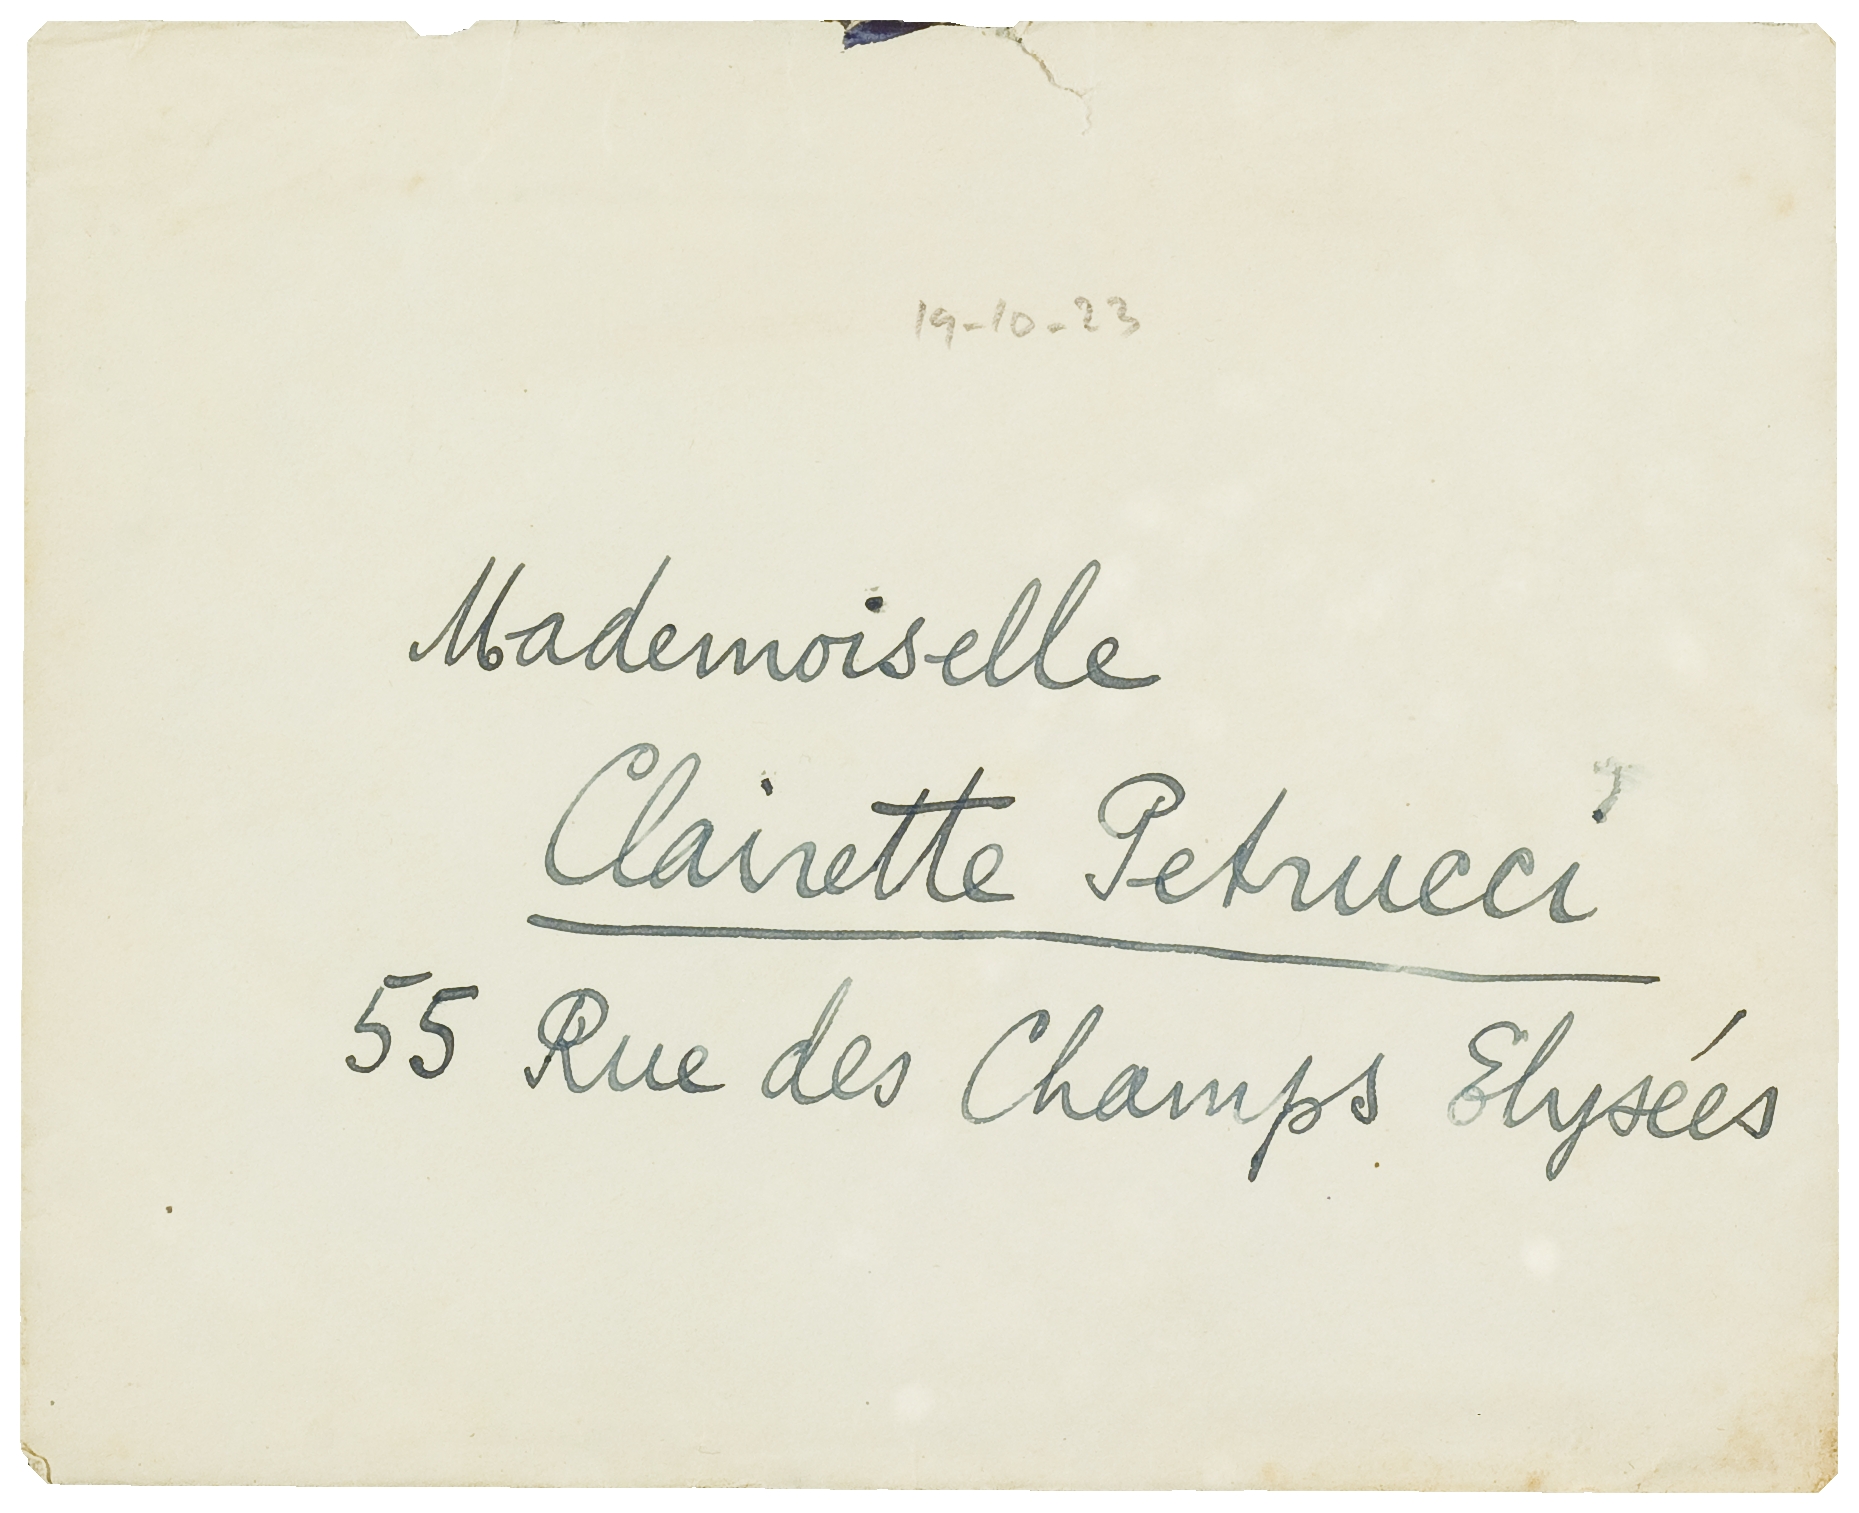 19-10-23
Mademoiselle
Clairette Petrucci
55 Rue des Champs Elysées